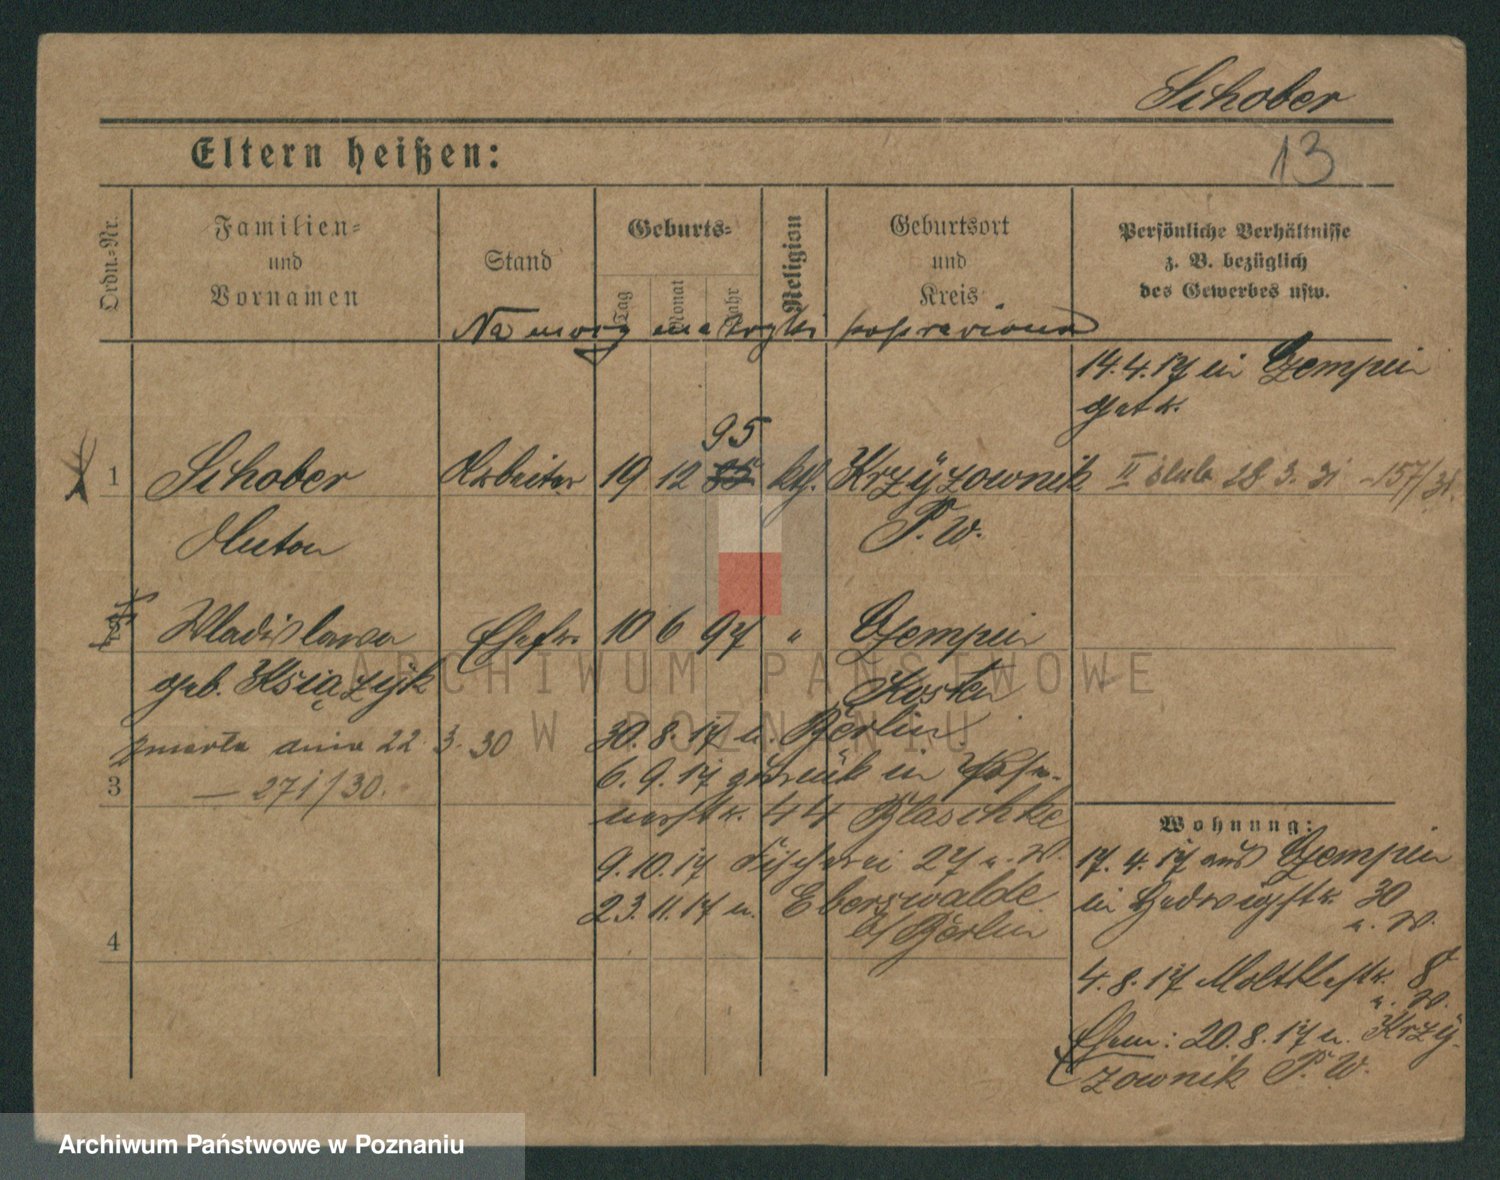 Schober
13
Eltern heißen:
Ordn.-Nr.
Familien-
und
Vornamen
Stand
Geburts-
Tag
Monat
Jahr
Religion
Geburtsort
und
Kreis
Persönliche Verhältnisse
z. B. bezüglich
des Gewerbes usw.
Na mocy metryki poprawiono
14.4.17 in Czempin
getr.
95
1 Schober Arbeiter 19 12 85 kth. Krzÿzownik II ślub 28 3. 31 - 157/31.
Anton P. W.
2 Wladislawa Ehefr. 10 6 97 " Czempin
geb. Książyk Kosten
zmarła dnia 22. 3. 30
30.8.17 n. Berlin.
3 — 271/30.
6.9.17 zurück in
44 Blaschke
9.10.17 Fischerei 27 a. W.
23.11.17 n. Eberswalde
b/ Berlin
4
Wohnung:
17.4.17 aus Czempin
in Hedwigstr. 30
a. W.
4.8.17 Moltkestr. 8
a. W.
Ehem: 20.8.17 n. Krzÿ-
zownik P. W.
ARCHIWUM PAŃSTWOWE
W POZNANIU
Archiwum Państwowe w Poznaniu